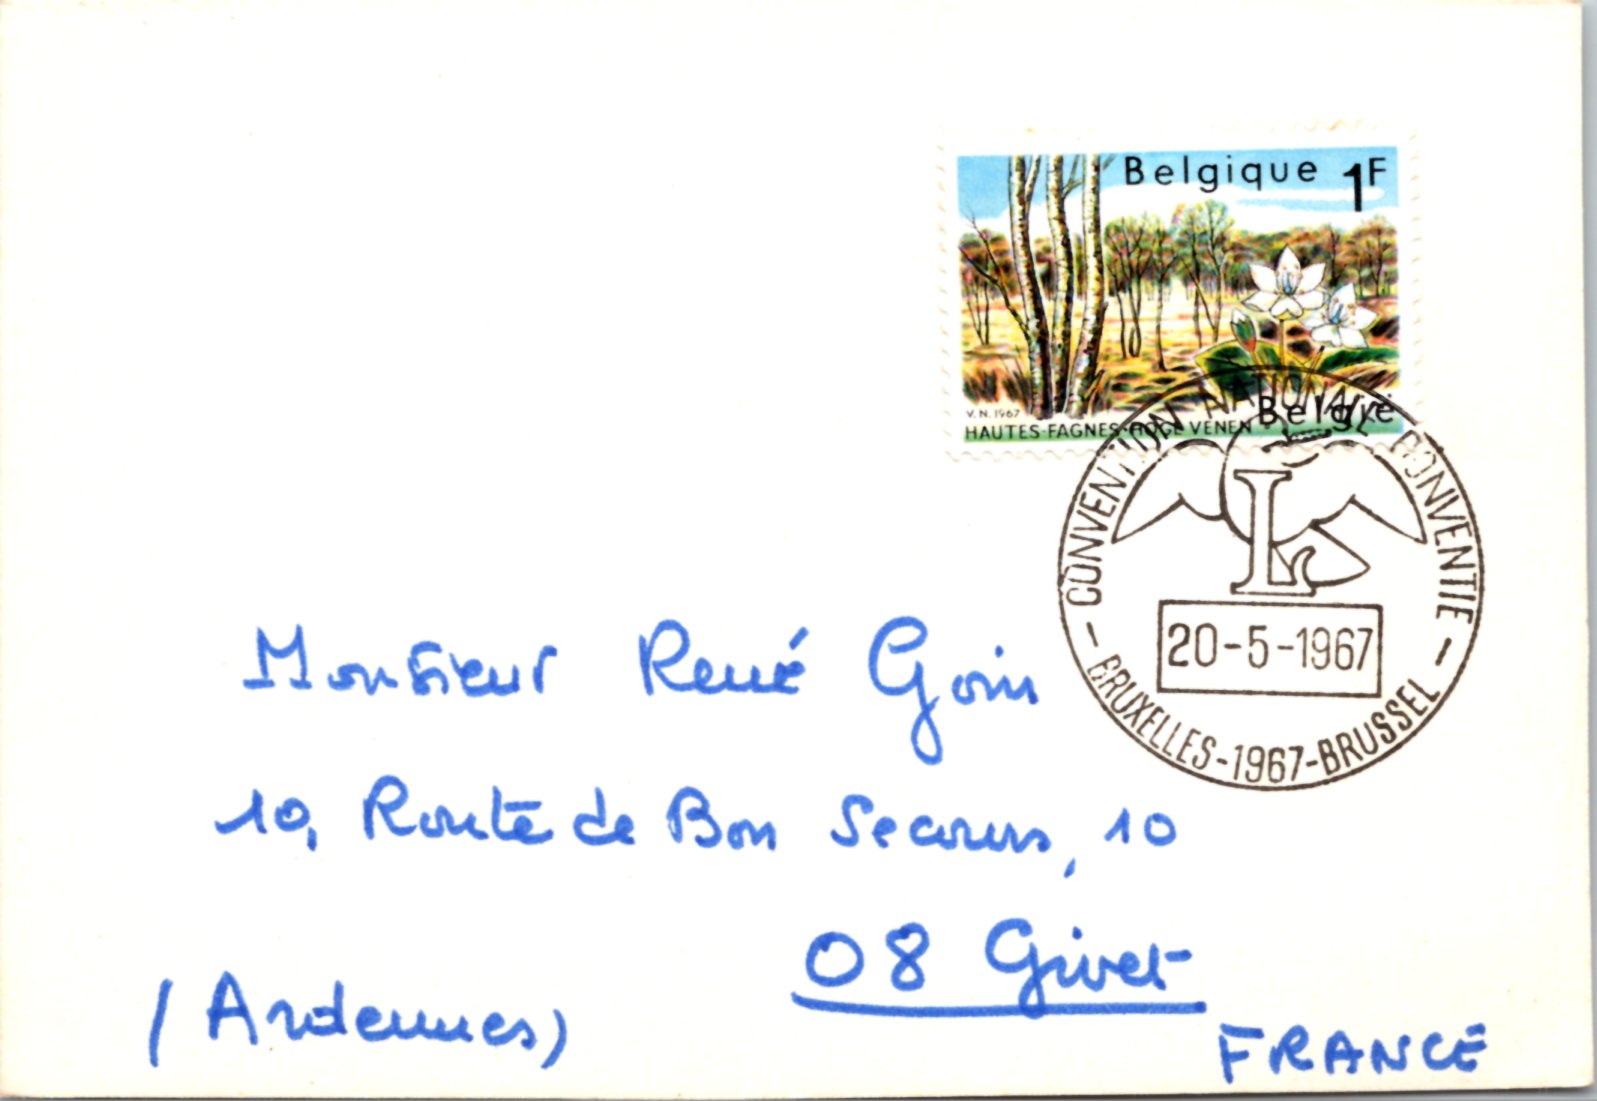 Belgique 1F
België
V.N. 1967
HAUTES-FAGNES-HOGE VENEN
CONVENTION NATIONALE CONVENTIE
L
20-5-1967
BRUXELLES-1967-BRUSSEL
Monsieur René Goin
10, Route de Bon Secours, 10
08 Givet
(Ardennes)
FRANCE